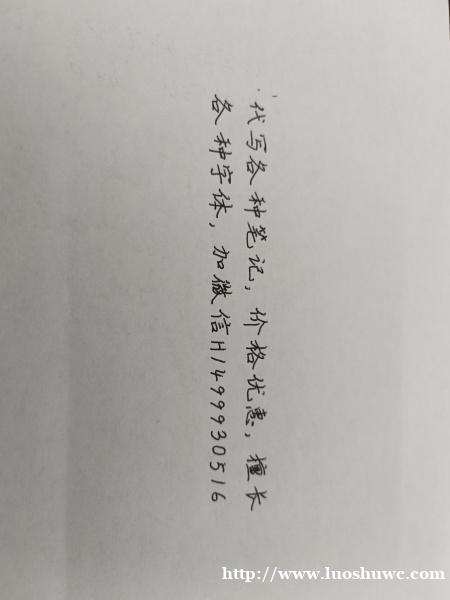 代写各种笔记，价格优惠，擅长
各种字体，加微信H14999930516
http://www.luoshuwc.com/